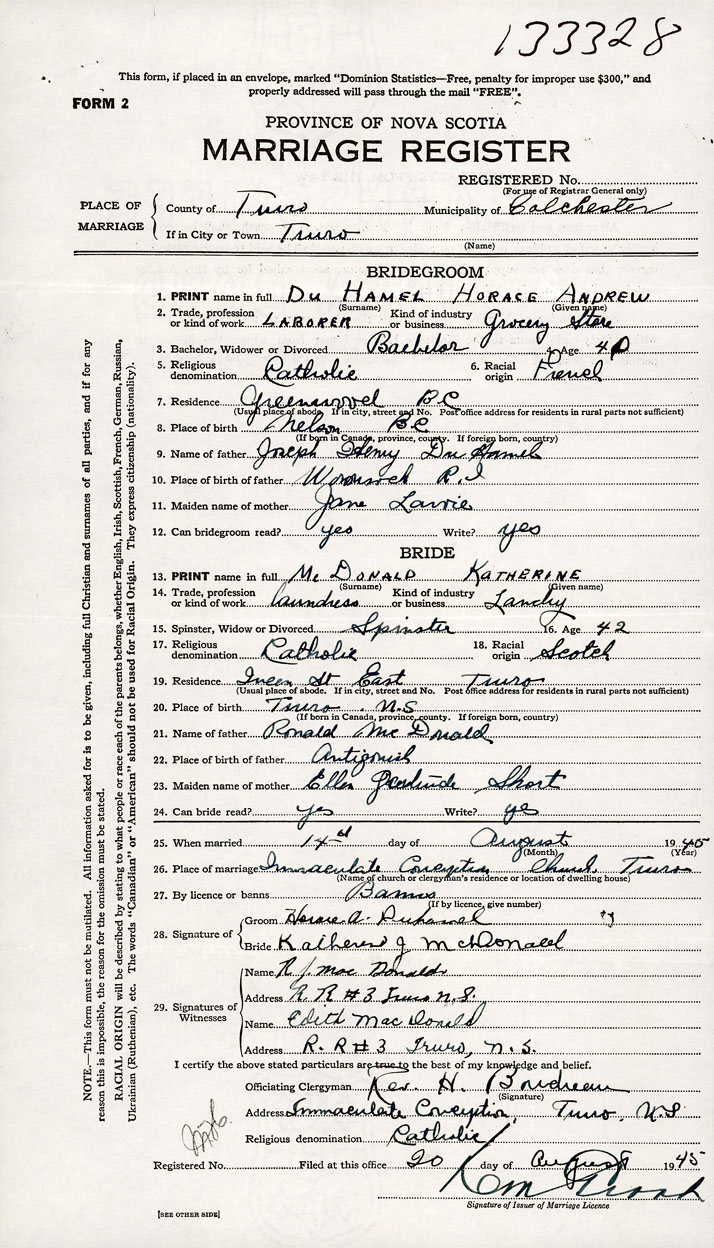 133328
This form, if placed in an envelope, marked “Dominion Statistics—Free, penalty for improper use $300,” and
properly addressed will pass through the mail “FREE”.
FORM 2
PROVINCE OF NOVA SCOTIA
MARRIAGE REGISTER
REGISTERED No.
(For use of Registrar General only)
PLACE OF MARRIAGE
County of Truro Municipality of Colchester
If in City or Town Truro
(Name)
BRIDEGROOM
1. PRINT name in full DU HAMEL HORACE ANDREW
(Surname) (Given name)
2. Trade, profession or kind of work LABORER Kind of industry or business Grocery Store
3. Bachelor, Widower or Divorced Bachelor 4. Age 40
5. Religious denomination Catholic 6. Racial origin French
7. Residence Greenwood BC
(Usual place of abode. If in city, street and No. Post office address for residents in rural parts not sufficient)
8. Place of birth Nelson BC
(If born in Canada, province, county. If foreign born, country)
9. Name of father Joseph Henry Du Hamel
10. Place of birth of father R.I
11. Maiden name of mother Jane
12. Can bridegroom read? yes Write? yes
BRIDE
13. PRINT name in full Mc DONALD KATHERINE
(Surname) (Given name)
14. Trade, profession or kind of work laundress Kind of industry or business Landry
15. Spinster, Widow or Divorced Spinster 16. Age 42
17. Religious denomination Catholic 18. Racial origin Scotch
19. Residence St East Truro
(Usual place of abode. If in city, street and No. Post office address for residents in rural parts not sufficient)
20. Place of birth Truro N.S
(If born in Canada, province, county. If foreign born, country)
21. Name of father Ronald Mc Donald
22. Place of birth of father Antigonish
23. Maiden name of mother Ellen Gertrude Short
24. Can bride read? yes Write? yes
25. When married 14 day of August 1945
(Month) (Year)
26. Place of marriage Immaculate Conception Church Truro
(Name of church or clergyman's residence or location of dwelling house)
27. By licence or banns Banns
(If by licence, give number)
28. Signature of
Groom Horace A. Duhamel
Bride Katherine J McDonald
29. Signatures of Witnesses
Name R. J. Mac Donald
Address R. R #3 Truro N.S.
Name Edith MacDonald
Address R. R #3 Truro, N.S.
I certify the above stated particulars are true to the best of my knowledge and belief.
Officiating Clergyman Rev. H. Boudreau
(Signature)
Address Immaculate Conception, Truro, N.S
Religious denomination Catholic
Registered No. Filed at this office 20 day of August 1945
Signature of Issuer of Marriage Licence
[SEE OTHER SIDE]
NOTE.—This form must not be mutilated. All information asked for is to be given, including full Christian and surnames of all parties, and if for any
reason this is impossible, the reason for the omission must be stated.
RACIAL ORIGIN will be described by stating to what people or race each of the parents belongs, whether English, Irish, Scottish, French, German, Russian,
Ukrainian (Ruthenian), etc. The words “Canadian” or “American” should not be used for Racial Origin. They express citizenship (nationality).